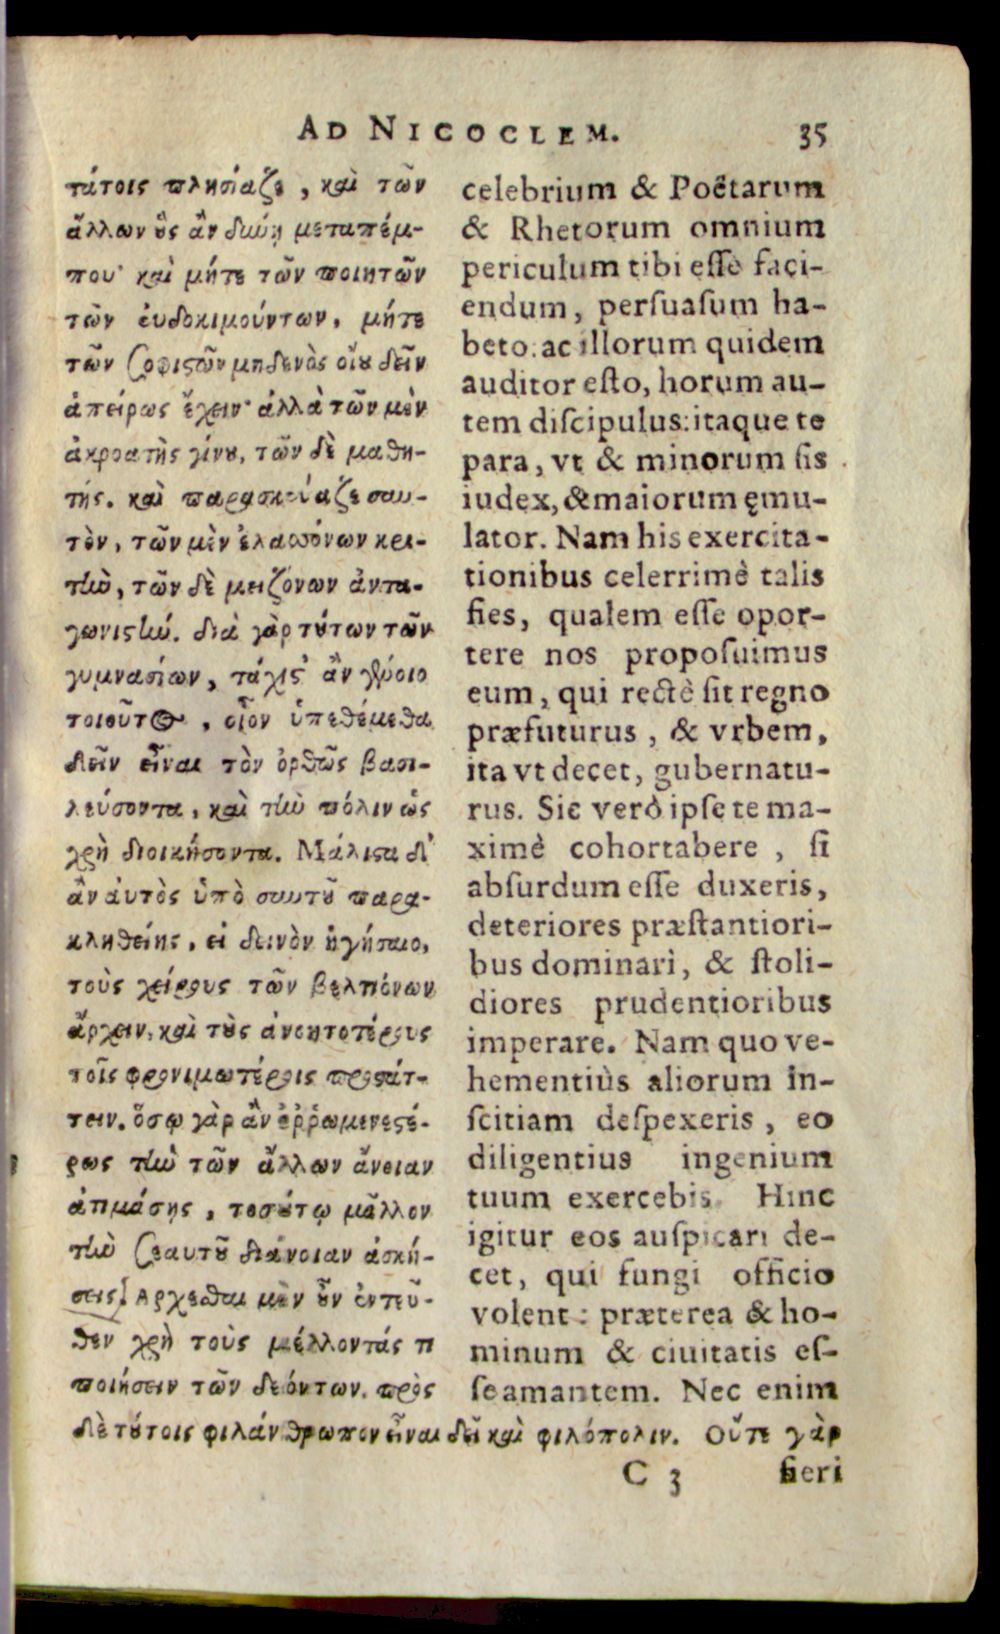 AD NICOCLEM. 35
τάτοις πλησίαζε, καὶ τῶν
ἄλλων οὓς ἂν δύνῃ μεταπέμ-
που· καὶ μήτε τῶν ποιητῶν
τῶν ἐυδοκιμούντων, μήτε
τῶν σοφιστῶν μηδενὸς οἴου δεῖν
ἀπείρως ἔχειν· ἀλλὰ τῶν μὲν
ἀκροατὴς γίνου, τῶν δὲ μαθη-
τής. καὶ παρασκεύαζε σαυ-
τὸν, τῶν μὲν ἐλαττόνων κρι-
τὴν, τῶν δὲ μειζόνων ἀντα-
γωνιστήν. διὰ γὰρ τούτων τῶν
γυμνασίων, τάχιστ' ἂν γένοιο
τοιοῦτος, οἷον ὑπεθέμεθα
δεῖν εἶναι τὸν ὀρθῶς βασι-
λεύσοντα, καὶ τὴν πόλιν ὡς
χρὴ διοικήσοντα. Μάλιστα δ'
ἂν ἀυτὸς ὑπὸ σαυτοῦ παρα-
κληθείης, εἰ δεινὸν ἡγήσαιο,
τοὺς χείρους τῶν βελτιόνων
ἄρχειν, καὶ τοὺς ἀνοητοτέρους
τοῖς φρονιμωτέροις προστάτ-
τειν. ὅσῳ γὰρ ἂν ἐῤῥωμενεστέ-
ρως τὴν τῶν ἄλλων ἄνοιαν
ἀτιμάσῃς, τοσούτῳ μᾶλλον
τὴν σεαυτοῦ διάνοιαν ἀσκή-
σεις. Αρχεσθαι μὲν οὖν ἐντεῦ-
θεν χρὴ τοὺς μέλλοντάς τι
ποιήσειν τῶν δεόντων. πρὸς
δὲ τούτοις φιλάνθρωπον εἶναι δεῖ καὶ φιλόπολιν. Οὔτε γὰρ
celebrium & Poëtarum
& Rhetorum omnium
periculum tibi esse faci-
endum, persuasum ha-
beto: ac illorum quidem
auditor esto, horum au-
tem discipulus: itaque te
para, vt & minorum sis
iudex, & maiorum ęmu-
lator. Nam his exercita-
tionibus celerrimè talis
fies, qualem esse opor-
tere nos proposuimus
eum, qui rectè sit regno
præfuturus, & vrbem,
ita vt decet, gubernatu-
rus. Sic verò ipse te ma-
ximè cohortabere, si
absurdum esse duxeris,
deteriores præstantiori-
bus dominari, & stoli-
diores prudentioribus
imperare. Nam quo ve-
hementiùs aliorum in-
scitiam despexeris, eo
diligentius ingenium
tuum exercebis. Hinc
igitur eos auspicari de-
cet, qui fungi officio
volent: præterea & ho-
minum & ciuitatis es-
se amantem. Nec enim
C 3 fieri